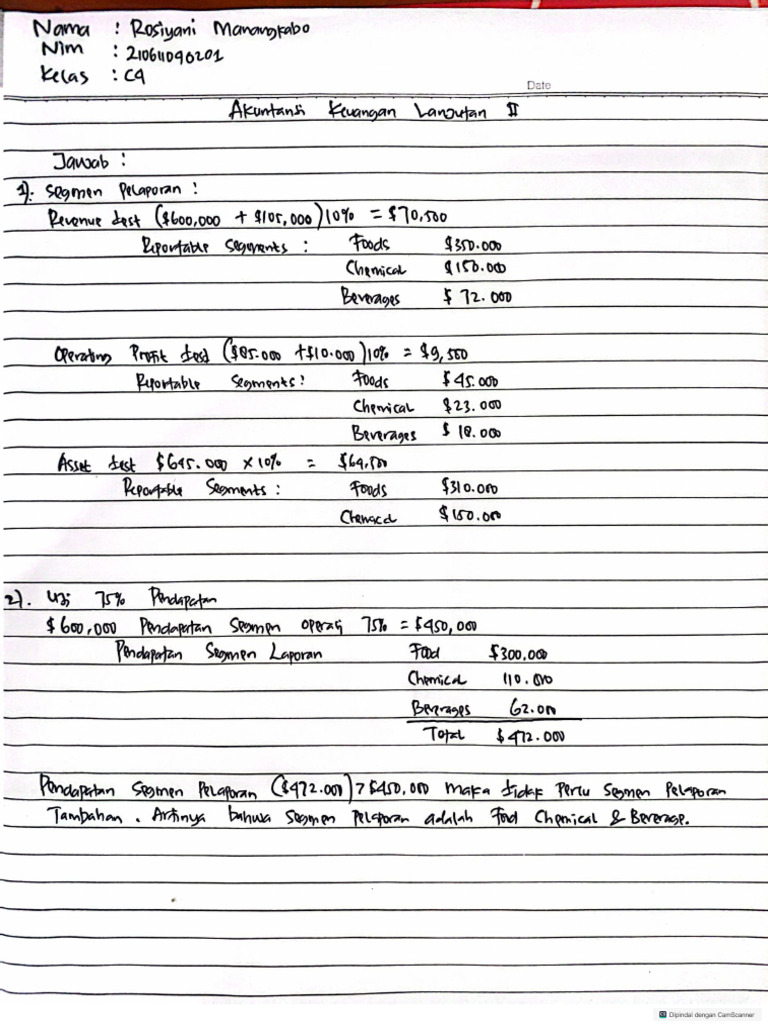 Nama : Rosiyani Manangkabo
Nim : 210611040201
Kelas : C4
Date
Akuntansi Keuangan Lanjutan II
Jawab :
1). Segmen Pelaporan :
Revenue test ($600,000 + $105,000)10% = $70,500
Reportable Segments : Foods $350.000
Chemical $150.000
Beverages $ 72.000
Operating Profit test ($85.000 + $10.000)10% = $9,500
Reportable Segments : Foods $45.000
Chemical $23.000
Beverages $ 18.000
Asset test $645.000 x 10% = $64.500
Reportable Segments : Foods $310.000
Chemical $150.000
2). Uji 75% Pendapatan
$600,000 Pendapatan Segmen operasi 75% = $450,000
Pendapatan Segmen Laporan Food $300,000
Chemical 110.000
Beverages 62.000
Total $472.000
Pendapatan Segmen Pelaporan ($472.000) > $450,000 maka tidak Perlu Segmen Pelaporan
Tambahan. Artinya bahwa Segmen Pelaporan adalah Food Chemical & Beverage.
Dipindai dengan CamScanner